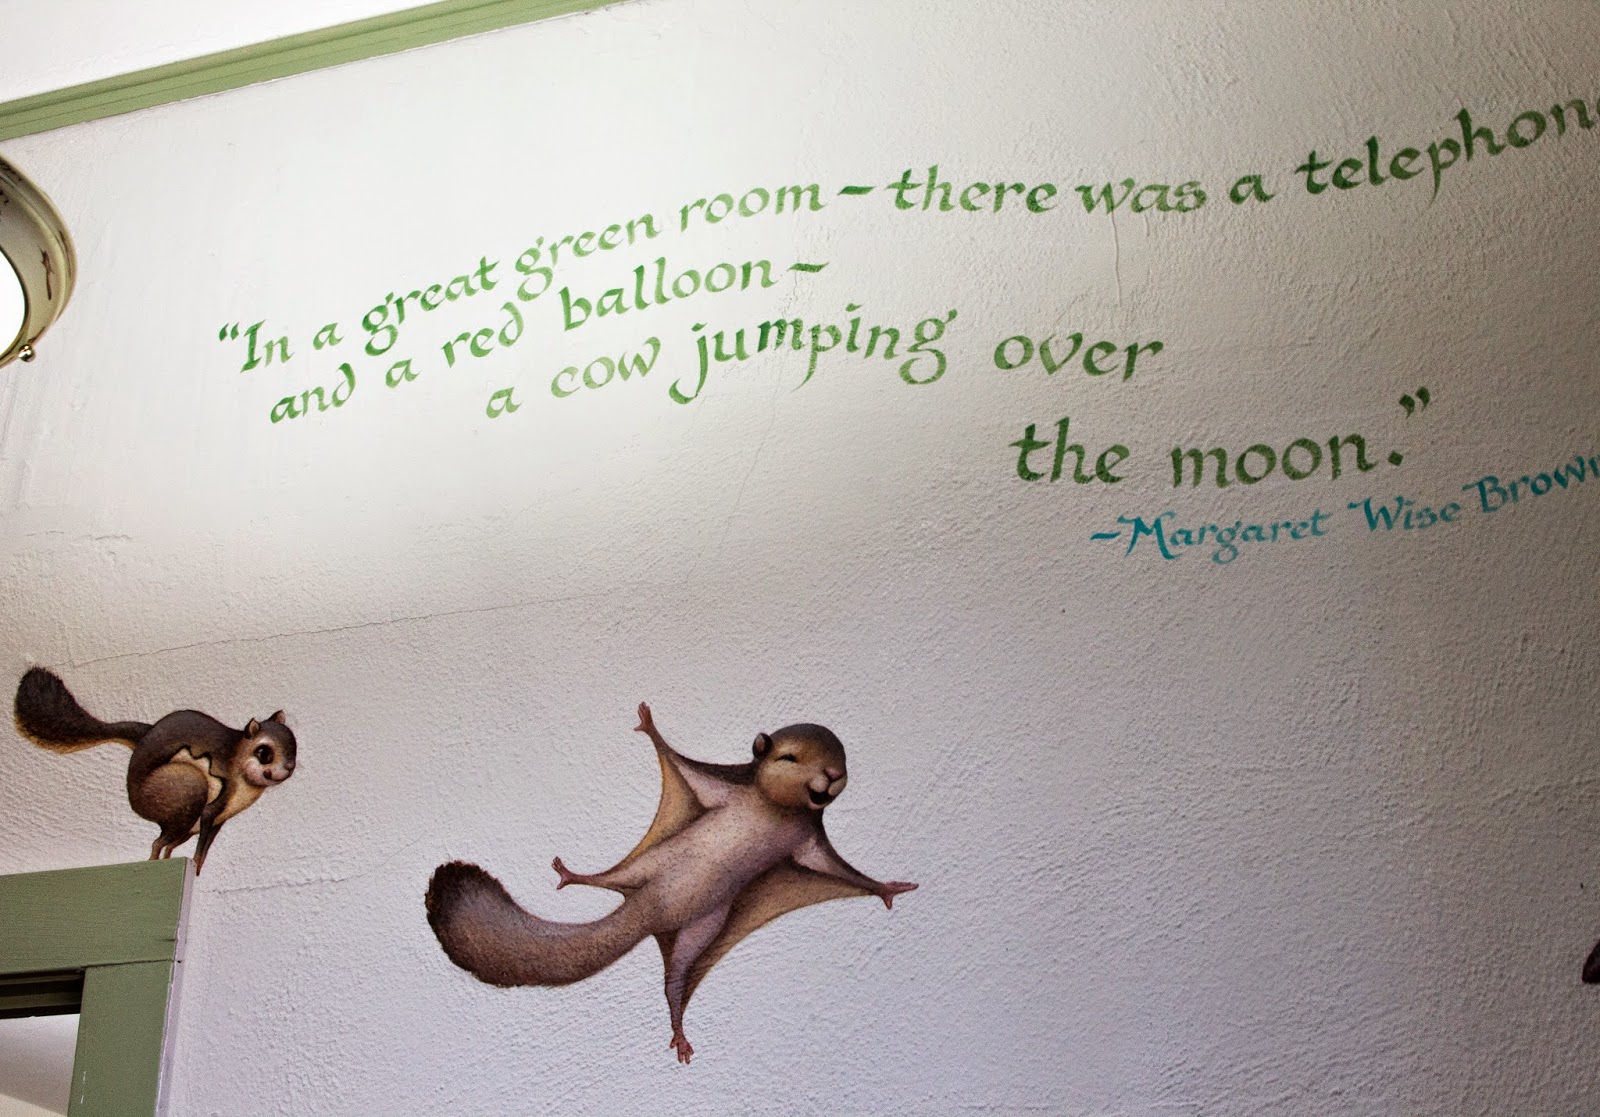 “In a great green room – there was a telephone
and a red balloon –
a cow jumping over
the moon.”
– Margaret Wise Brown